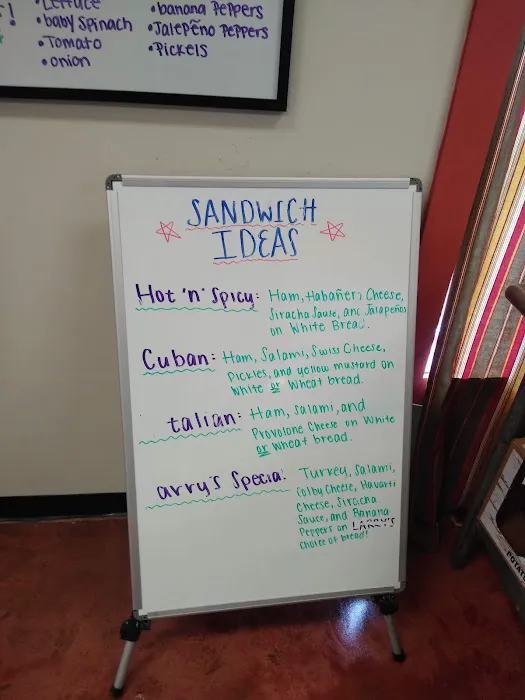 !
• Lettuce
• baby spinach
• Tomato
• onion
• banana Peppers
• Jalepeño Peppers
• Pickels
SANDWICH
IDEAS
Hot 'n' Spicy: Ham, Habañero Cheese,
Siracha Sause, and Jalapeños
on White Bread.
Cuban: Ham, Salami, Swiss Cheese,
Pickles, and yellow mustard on
white or wheat bread.
talian: Ham, salami, and
Provolone Cheese on White
or wheat bread.
arry's Special: Turkey, Salami,
Colby Cheese, Havarti
Cheese, Siracha
Sauce, and Banana
Peppers on LARRY'S
choice of bread!
POTATO